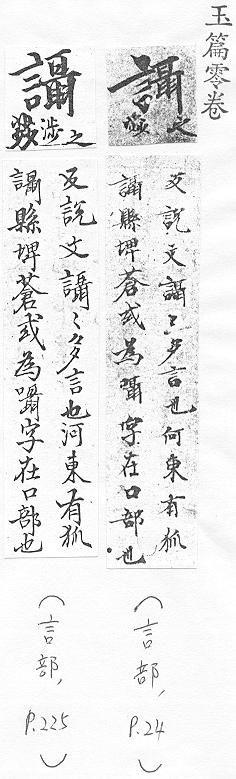 玉篇零卷
讘 之
涉
反說文讘〻多言也何東有狐
讘縣埤蒼或為囁字在口部也
(言部, P.24)
讘 之
涉
反說文讘〻多言也河東有狐
讘縣埤蒼或為囁字在口部也
(言部, P.225)